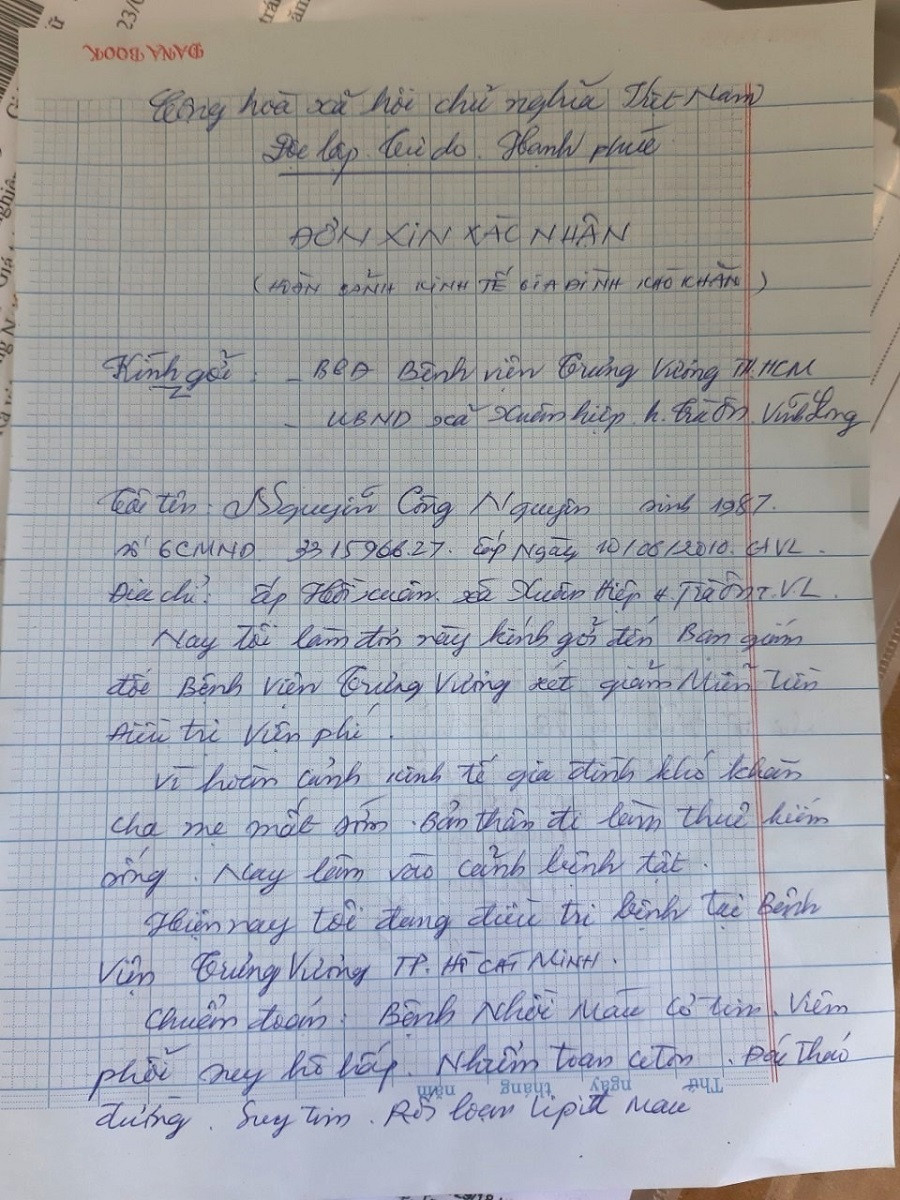 DANA BOOK
23/0
Cộng hoà xã hội chủ nghĩa Việt Nam
Độc lập. Tự do. Hạnh phúc
ĐƠN XIN XÁC NHẬN
(HOÀN CẢNH KINH TẾ GIA ĐÌNH KHÓ KHĂN)
Kính gởi: - BGĐ Bệnh viện Trưng Vương TP.HCM
- UBND xã Xuân hiệp. h. Trà Ôn. Vĩnh Long
Tôi tên: Nguyễn Công Nguyện sinh 1987.
Số GCMND 331596627. Cấp Ngày 10/06/2010. CAVL.
Địa chỉ: ấp Hồi xuân. xã Xuân Hiệp H. Trà Ôn T. V.L.
Nay tôi làm đơn này kính gởi đến Ban giám
đốc Bệnh Viện Trưng Vương xét giảm Miễn tiền
Điều trị Viện phí.
Vì hoàn cảnh kinh tế gia đình khó khăn
cha mẹ mất sớm. Bản thân đi làm thuê kiếm
sống. Nay lâm vào cảnh bệnh tật.
Hiện nay tôi đang điều trị bệnh tại Bệnh
Viện Trưng Vương TP. HỒ CHÍ MINH.
Chuẩn đoán: Bệnh Nhồi Máu cơ tim. Viêm
phổi suy hô hấp. Nhiễm toan ceton. Đái tháo
Thứ ngày tháng năm
đường. Suy tim. Rối loạn lipit Máu